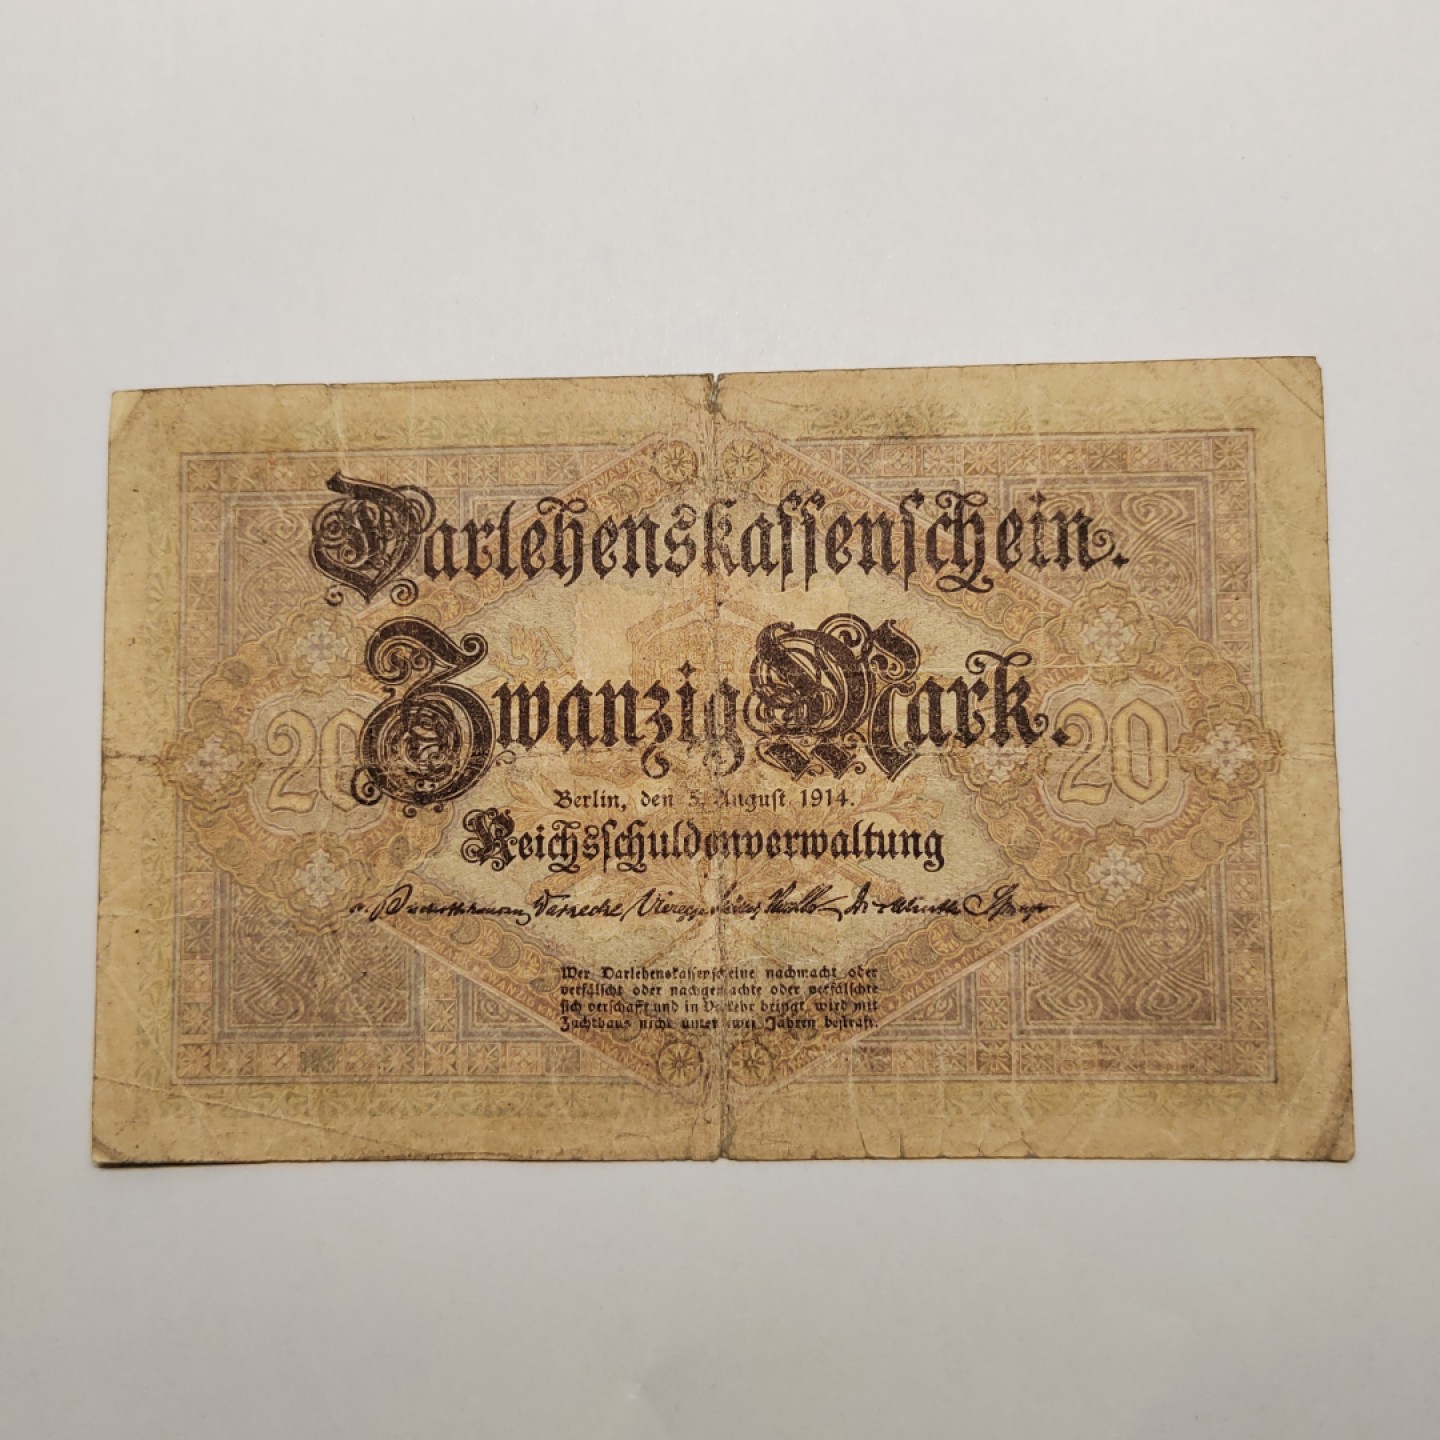 Darlehenskassenschein.
Zwanzig Mark.
20 20
Berlin, den 5. August 1914.
Reichsschuldenverwaltung
Warnecke Vieregge Müller Dr
Wer Darlehenskassenscheine nachmacht oder
verfälscht oder nachgemachte oder verfälschte
sich verschafft und in Verkehr bringt, wird mit
Zuchthaus nicht unter zwei Jahren bestraft.